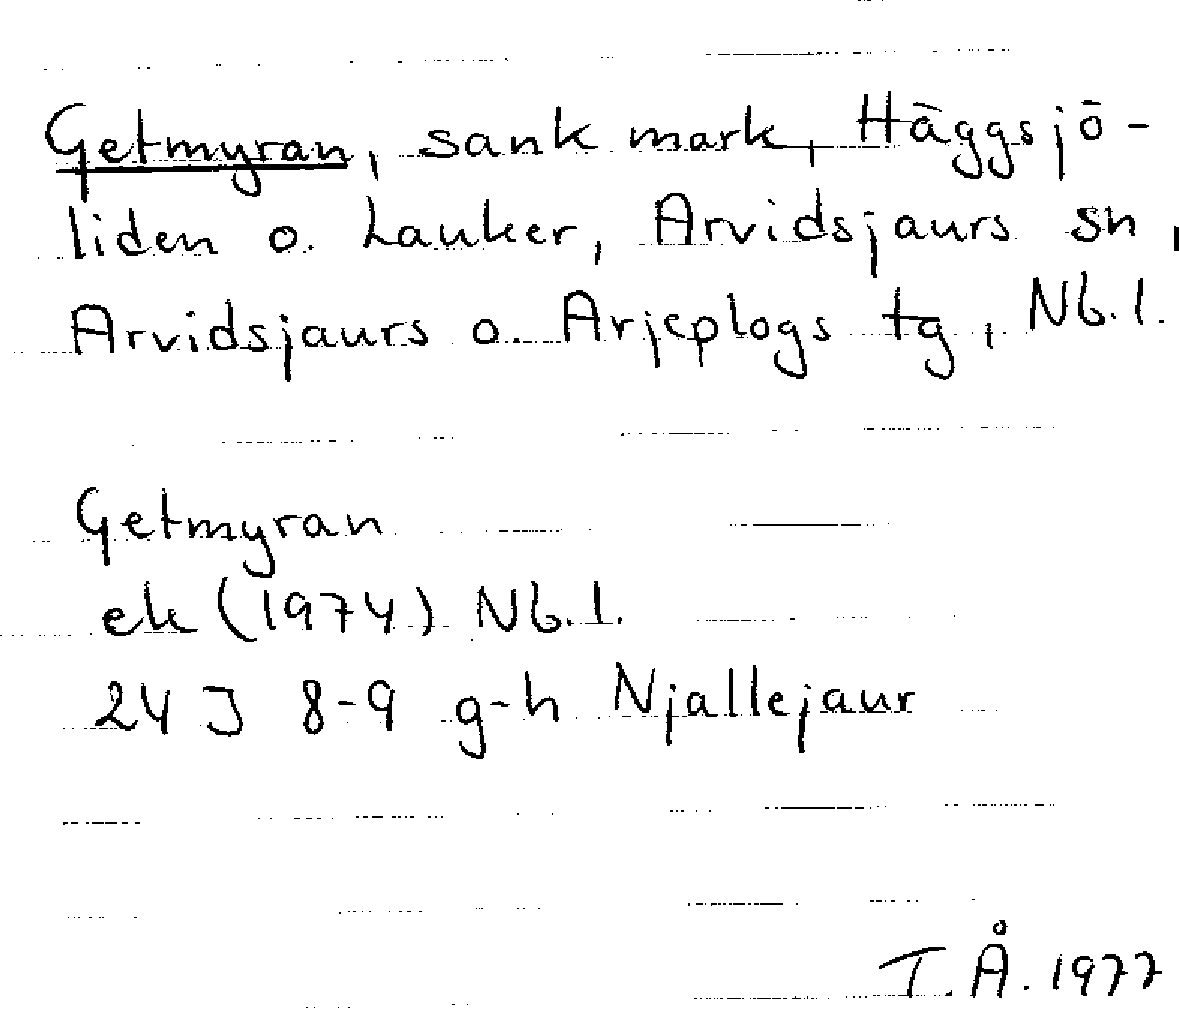 Getmyran, sank mark, Häggsjö-
liden o. Lauker, Arvidsjaurs sn,
Arvidsjaurs o. Arjeplogs tg, Nb.l.
Getmyran
ek (1974) Nb.l.
24 J 8-9 g-h Njallejaur
T.Å. 1977